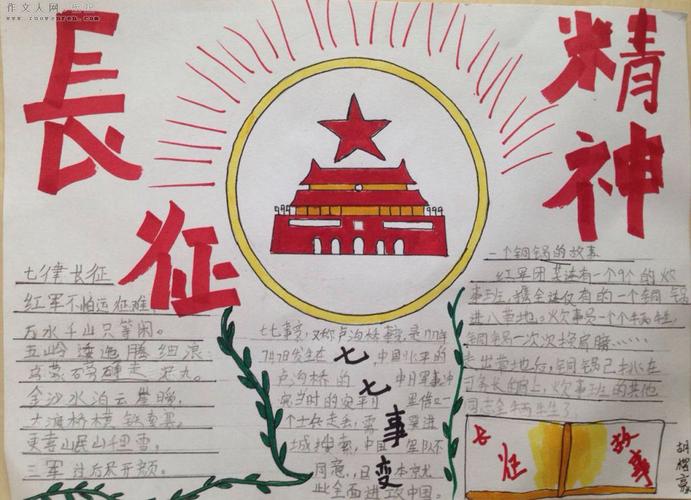 作文人网
長征
精神
七律长征
红军不怕远征难
万水千山只等闲。
五岭逶迤腾细浪
乌蒙磅礴走泥丸。
金沙水泊云崖暖,
大渡桥横铁索寒。
更喜岷山千里雪。
三军过后尽开颜。
七七事变,又称卢沟桥事变,是
7月7日发生在 中国北平的
卢沟桥的 中日军事冲
突当时的
个士兵走失,需要进
城搜索,中国军队不
同意,日
此全面进攻中国。
七七事变
一个铜锅的故事
红军团某连有一个9人的炊
事班,携全连仅有的一个铜锅
进入草地。炊事员一个个牺牲,
铜锅一次次
走出草地后,铜锅已
炊事班的其他
同志全牺牲了
长征
故事